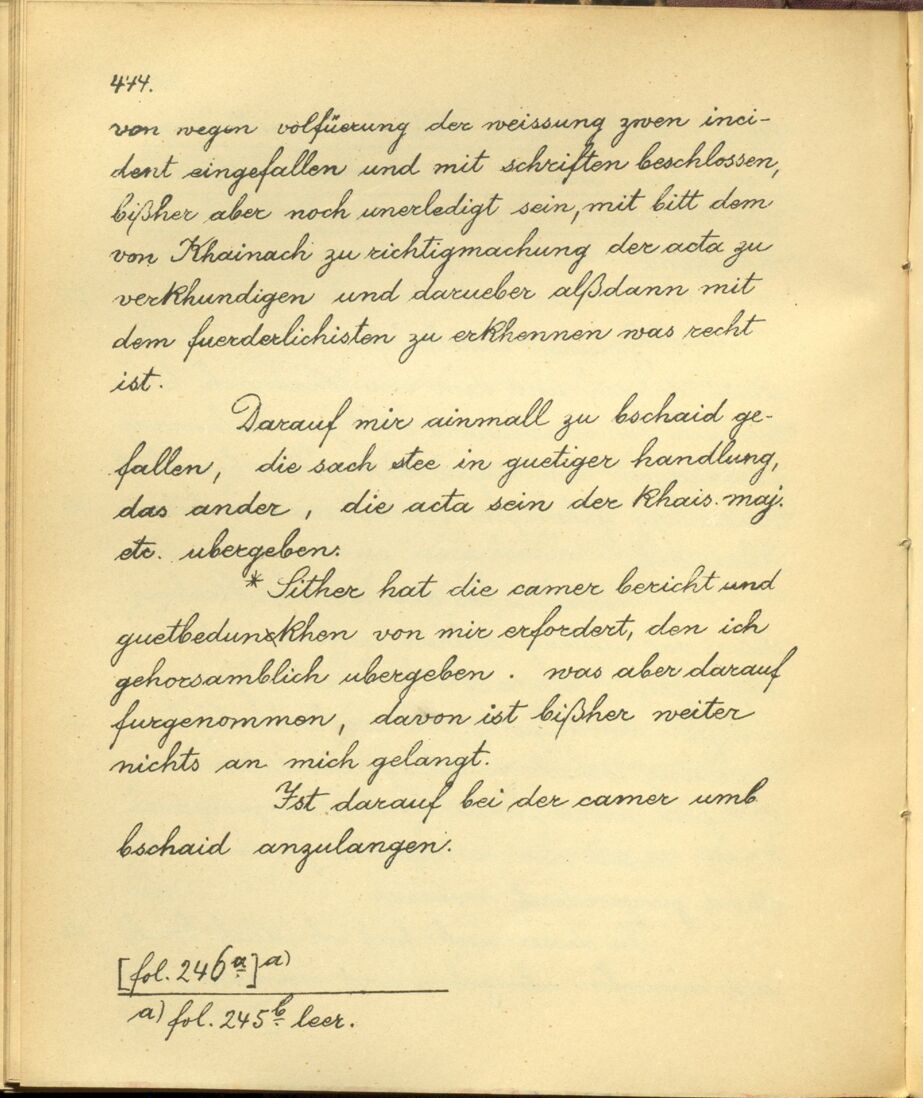 414.
von wegen volfüerung der weissung zwen inci-
dent eingefallen und mit schriften beschlossen,
bißher aber noch unerledigt sein, mit bitt dem
von Khainach zu richtigmachung der acta zu
verkhundigen und darueber alßdann mit
dem fuerderlichisten zu erkhennen was recht
ist.
Darauf mir ainmall zu bschaid ge-
fallen, die sach stee in guetiger handlung,
das ander, die acta sein der khais. maj.
etc. ubergeben.
* Sither hat die camer bericht und
guetbedunckhen von mir erfordert, den ich
gehorsamblich ubergeben. was aber darauf
furgenommen, davon ist bißher weiter
nichts an mich gelangt.
Ist darauf bei der camer umb
bschaid anzulangen.
[fol. 246a] a)
a) fol. 245b leer.